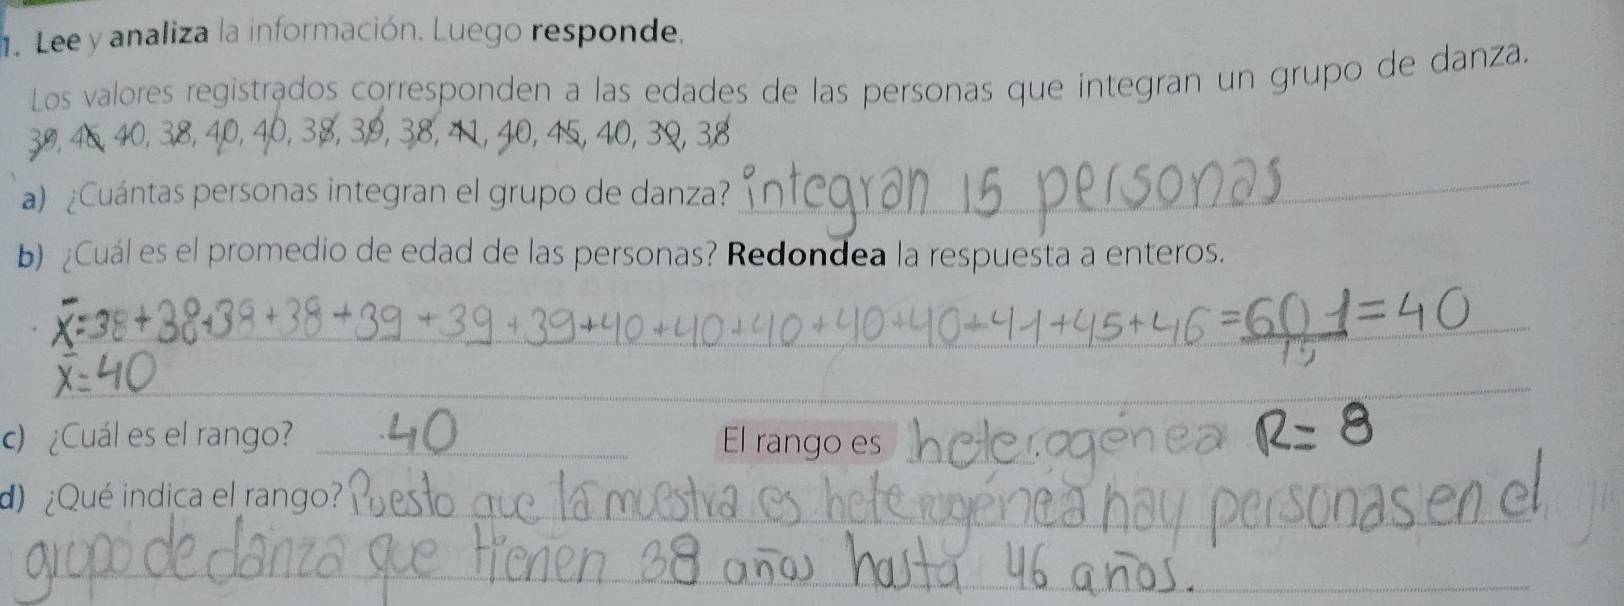 1. Lee y analiza la información. Luego responde.
Los valores registrados corresponden a las edades de las personas que integran un grupo de danza.
39, 46, 40, 38, 40, 40, 38, 39, 38, 41, 40, 45, 40, 39, 38
a) ¿Cuántas personas integran el grupo de danza? integran 15 personas
b) ¿Cuál es el promedio de edad de las personas? Redondea la respuesta a enteros.
x̄=38+38+38+38+39+39+39+40+40+40+40+40+41+45+46=601=40
15
x̄=40
c) ¿Cuál es el rango? 40 El rango es heterogénea R=8
d) ¿Qué indica el rango? Puesto que la muestra es heterogénea hay personas en el
grupo de danza que tienen 38 años hasta 46 años.